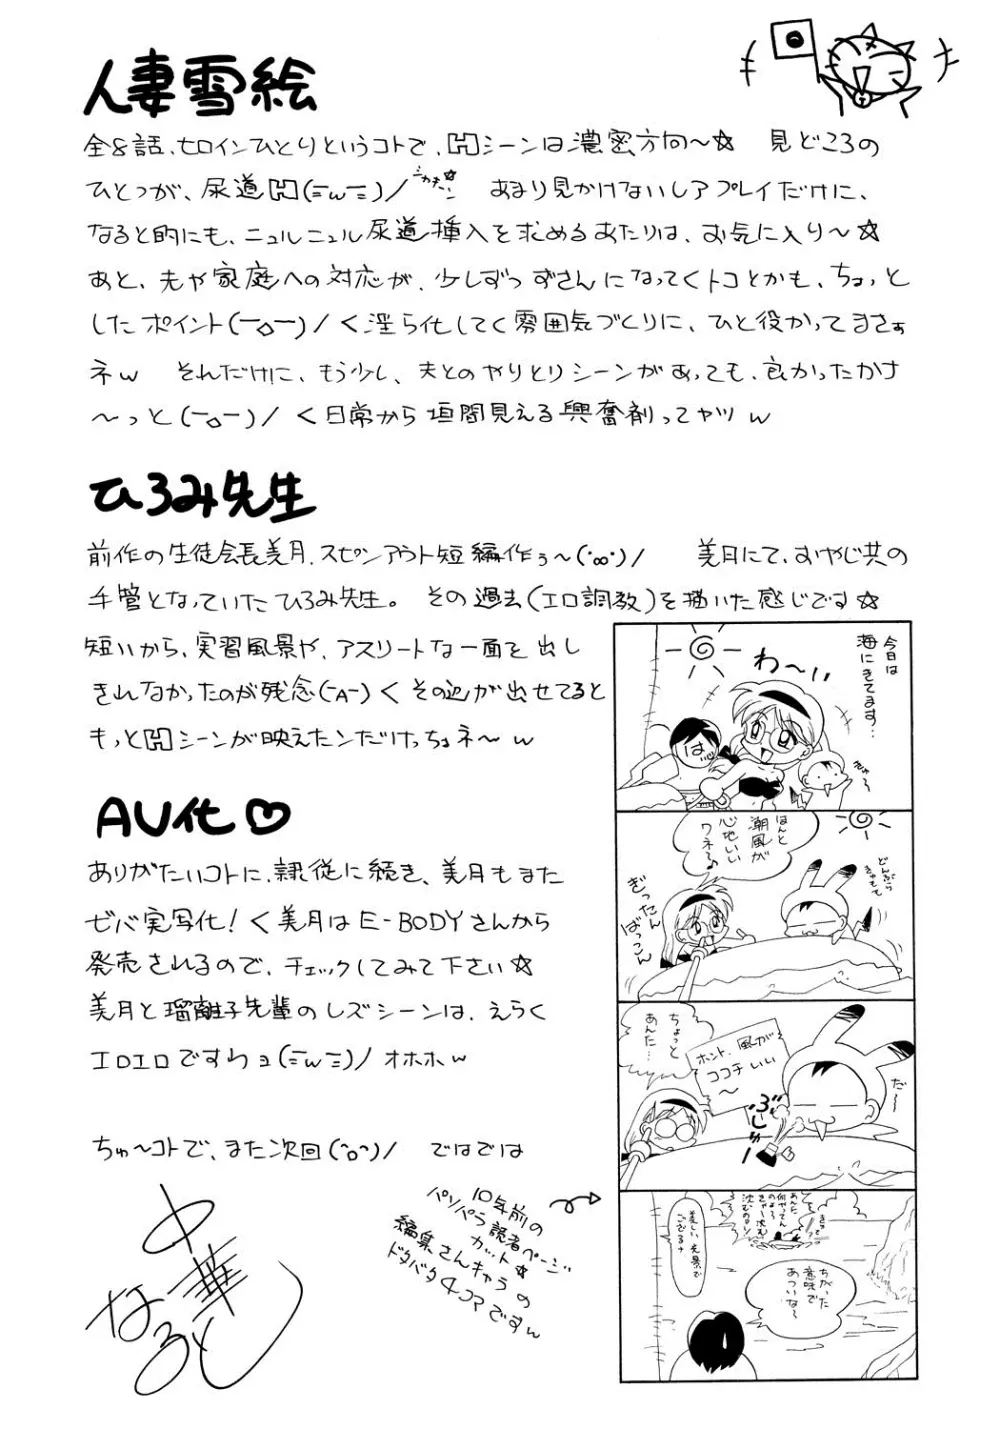 人妻雪絵
全8話、ヒロインひとりというコトで、Hシーンは濃密方向～☆　見どころの
ひとつが、尿道H(=w=)/　あまり見かけないレアプレイだけに、
なると的にも、ニュルニュル尿道挿入を求めるあたりは、お気に入り～☆
あと、夫や家庭への対応が、少しずつずさんになってくトコとかも、ちょっと
したポイント(ーoー)/く淫ら化してく雰囲気づくりに、ひと役かってまさぁ
ネw　それだけに、もう少し、夫とのやりとりシーンがあっても、良かったかナ
～っと(ーoー)/く日常から垣間見える興奮剤ってヤツw
ひろみ先生
前作の生徒会長美月、スピンアウト短編作ぅ～　美月にて、おやじ共の
手管となっていたひろみ先生。その過去(エロ調教)を描いた感じです☆
短いから、実習風景や、アスリートな一面を出し
きれなかったのが残念(ーAー)くその辺が出せてると
もっとHシーンが映えたンだけっちょネ～w
AV化♡
ありがたいコトに、隷従に続き、美月もまた
ゼバ実写化！く美月はE-BODYさんから
発売されるので、チェックしてみて下さい☆
美月と瑠離子先輩のレズシーンは、えらく
エロエロですわョ(=w=)/オホホw
ちゅ～コトで、また次回(^o^)/　ではでは
中華なると
10年前の
パソパラ読者ページ
カット☆
編集さんキャラの
ドタバタ4コマですw
今日は
海にきてます…
わ～い
はい
ほんと
潮風が
心地いい
ワネ♪
ぎったん
ばっこん
どんぶら
ちょっと
あんた…
ホント、風が
ココチいい
～
だ～
ぶしゅー
美しい光景で
ござるナ
ちがった
意味で
あついな～